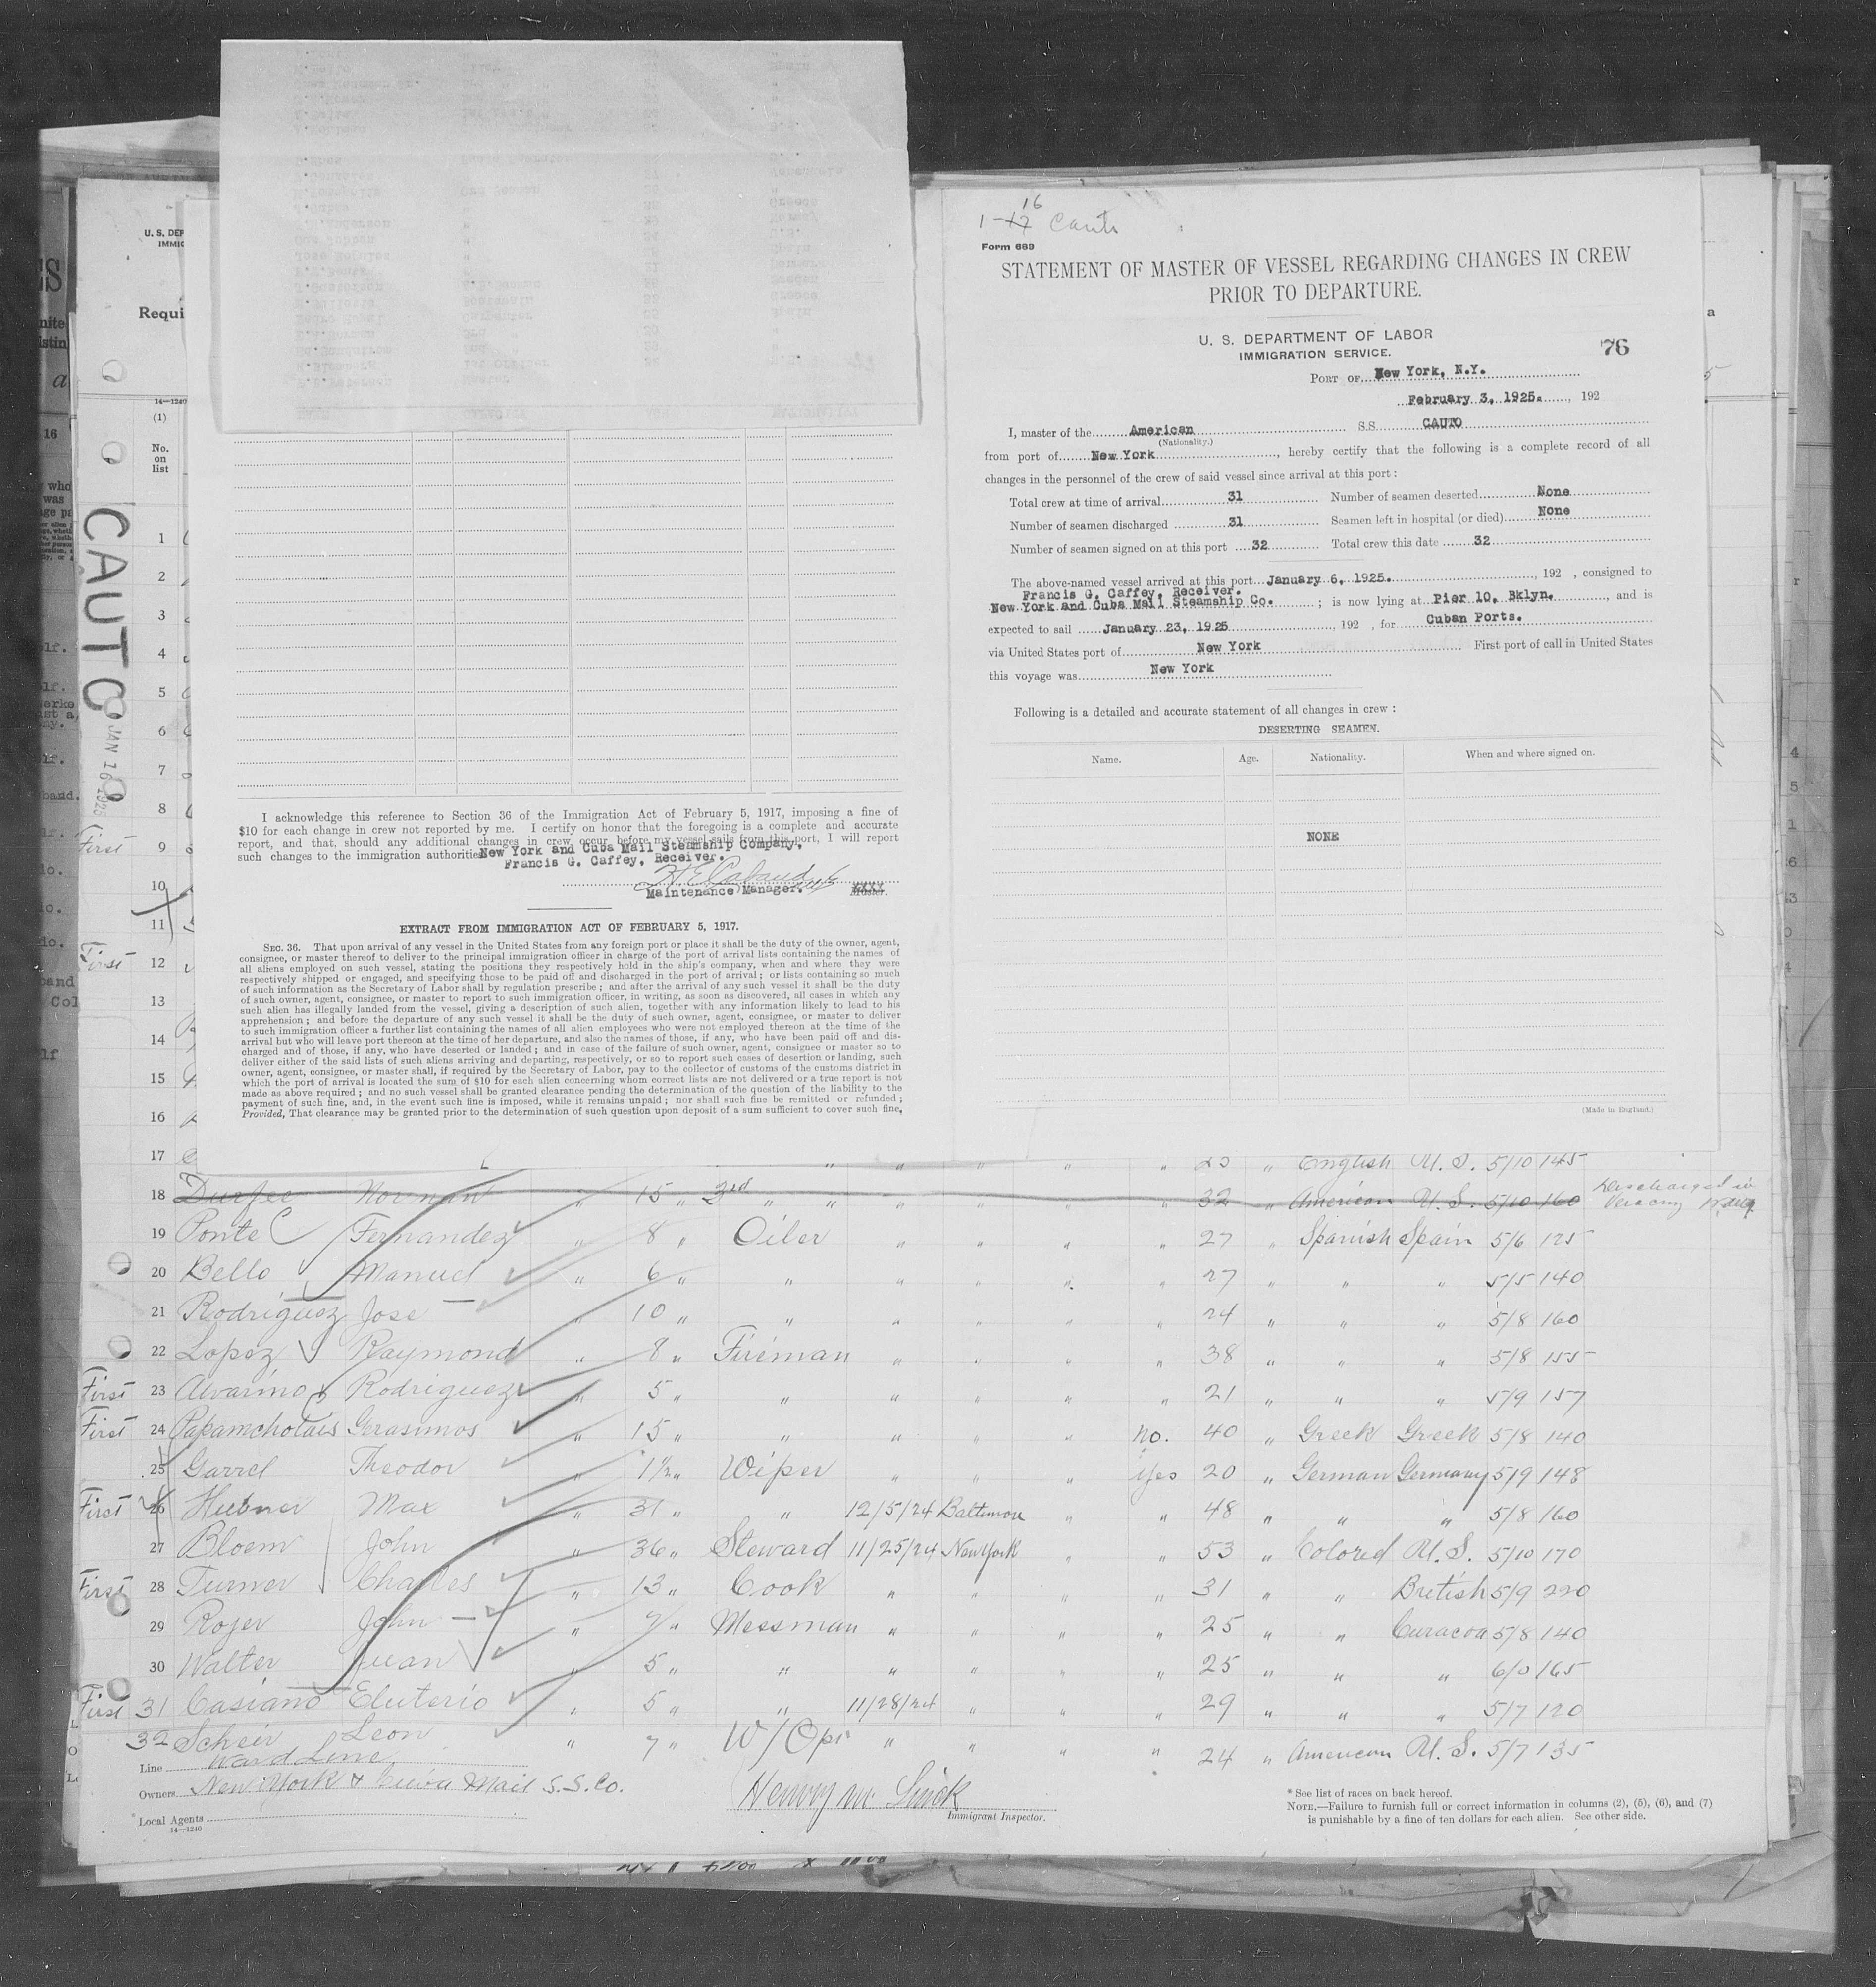 1-17 16 Cauto
Form 689
STATEMENT OF MASTER OF VESSEL REGARDING CHANGES IN CREW
PRIOR TO DEPARTURE.
U. S. DEPARTMENT OF LABOR
IMMIGRATION SERVICE.
76
PORT OF New York, N.Y.
February 3, 1925. , 192
I, master of the American S.S. CAUTO
(Nationality.)
from port of New York , hereby certify that the following is a complete record of all
changes in the personnel of the crew of said vessel since arrival at this port :
Total crew at time of arrival 31 Number of seamen deserted None
Number of seamen discharged 31 Seamen left in hospital (or died) None
Number of seamen signed on at this port 32 Total crew this date 32
The above-named vessel arrived at this port January 6, 1925. , 192 , consigned to
Francis G. Caffey, Receiver.
New York and Cuba Mail Steamship Co. ; is now lying at Pier 10, Bklyn. , and is
expected to sail January 23, 1925 , 192 , for Cuban Ports.
via United States port of New York First port of call in United States
this voyage was New York
Following is a detailed and accurate statement of all changes in crew :
DESERTING SEAMEN.
Name. Age. Nationality. When and where signed on.
NONE
(Made in England.)
I acknowledge this reference to Section 36 of the Immigration Act of February 5, 1917, imposing a fine of
$10 for each change in crew not reported by me. I certify on honor that the foregoing is a complete and accurate
report, and that, should any additional changes in crew occur before my vessel sails from this port, I will report
such changes to the immigration authorities
New York and Cuba Mail Steamship Company,
Francis G. Caffey, Receiver.
Maintenance Manager. XXXX
EXTRACT FROM IMMIGRATION ACT OF FEBRUARY 5, 1917.
SEC. 36. That upon arrival of any vessel in the United States from any foreign port or place it shall be the duty of the owner, agent,
consignee, or master thereof to deliver to the principal immigration officer in charge of the port of arrival lists containing the names of
all aliens employed on such vessel, stating the positions they respectively hold in the ship's company, when and where they were
respectively shipped or engaged, and specifying those to be paid off and discharged in the port of arrival ; or lists containing so much
of such information as the Secretary of Labor shall by regulation prescribe ; and after the arrival of any such vessel it shall be the duty
of such owner, agent, consignee, or master to report to such immigration officer, in writing, as soon as discovered, all cases in which any
such alien has illegally landed from the vessel, giving a description of such alien, together with any information likely to lead to his
apprehension ; and before the departure of any such vessel it shall be the duty of such owner, agent, consignee, or master to deliver
to such immigration officer a further list containing the names of all alien employees who were not employed thereon at the time of the
arrival but who will leave port thereon at the time of her departure, and also the names of those, if any, who have been paid off and dis-
charged and of those, if any, who have deserted or landed ; and in case of the failure of such owner, agent, consignee or master so to
deliver either of the said lists of such aliens arriving and departing, respectively, or so to report such cases of desertion or landing, such
owner, agent, consignee, or master shall, if required by the Secretary of Labor, pay to the collector of customs of the customs district in
which the port of arrival is located the sum of $10 for each alien concerning whom correct lists are not delivered or a true report is not
made as above required ; and no such vessel shall be granted clearance pending the determination of the question of the liability to the
payment of such fine, and, in the event such fine is imposed, while it remains unpaid ; nor shall such fine be remitted or refunded ;
Provided, That clearance may be granted prior to the determination of such question upon deposit of a sum sufficient to cover such fine,
U. S. DEP
IMMIG
Requi
14—1240
(1)
No.
on
list
CAUTO
JAN 16 1925
1
2
3
4
5
6
7
8
First 9
10
11
First 12
13
14
15
16
17 " " " " " 25 " English U. S. 5/10 145
18 Durfee Norman " 15 " 3rd " " " " " " 32 " American U. S. 5/10 160 Discharged in
19 Ponte Fernandez " 8 " Oiler " " " " 27 " Spanish Spain 5/6 125
20 Bello Manuel " 6 " " " " " " 27 " " " 5/5 140
21 Rodriguez Jose " 10 " " " " " " 24 " " " 5/8 160
22 Lopez Raymond " 8 " Fireman " " " " 38 " " " 5/8 155
First 23 Alvarino Rodriguez " 5 " " " " " " 21 " " " 5/9 157
First 24 Papamcholais Gerasimos " 15 " " " " " no. 40 " Greek Greek 5/8 140
25 Garrel Theodor " 1½ " Wiper " " " yes 20 " German Germany 5/9 148
First 26 Hubner Max " 31 " " 12/5/24 Baltimore " " 48 " " " 5/8 160
27 Bloem John " 36 " Steward 11/25/24 New York " " 53 " Colored U. S. 5/10 170
First 28 Turner Charles " 13 " Cook " " " " 31 " " British 5/9 220
29 Rojer John " 7 " Messman " " " " 25 " " Curacoa 5/8 140
30 Walter Juan " 5 " " " " " " 25 " " " 6/0 165
First 31 Casiano Eluterio " 5 " " 11/28/24 " " " 29 " " " 5/7 120
32 Scheir Leon " 7 " W/Opr " " " " 24 " American U. S. 5/7 135
Line Ward Line
Owners New York & Cuba Mail S. S. Co.
Local Agents
14—1240
Immigrant Inspector.
* See list of races on back hereof.
NOTE.—Failure to furnish full or correct information in columns (2), (5), (6), and (7)
is punishable by a fine of ten dollars for each alien. See other side.